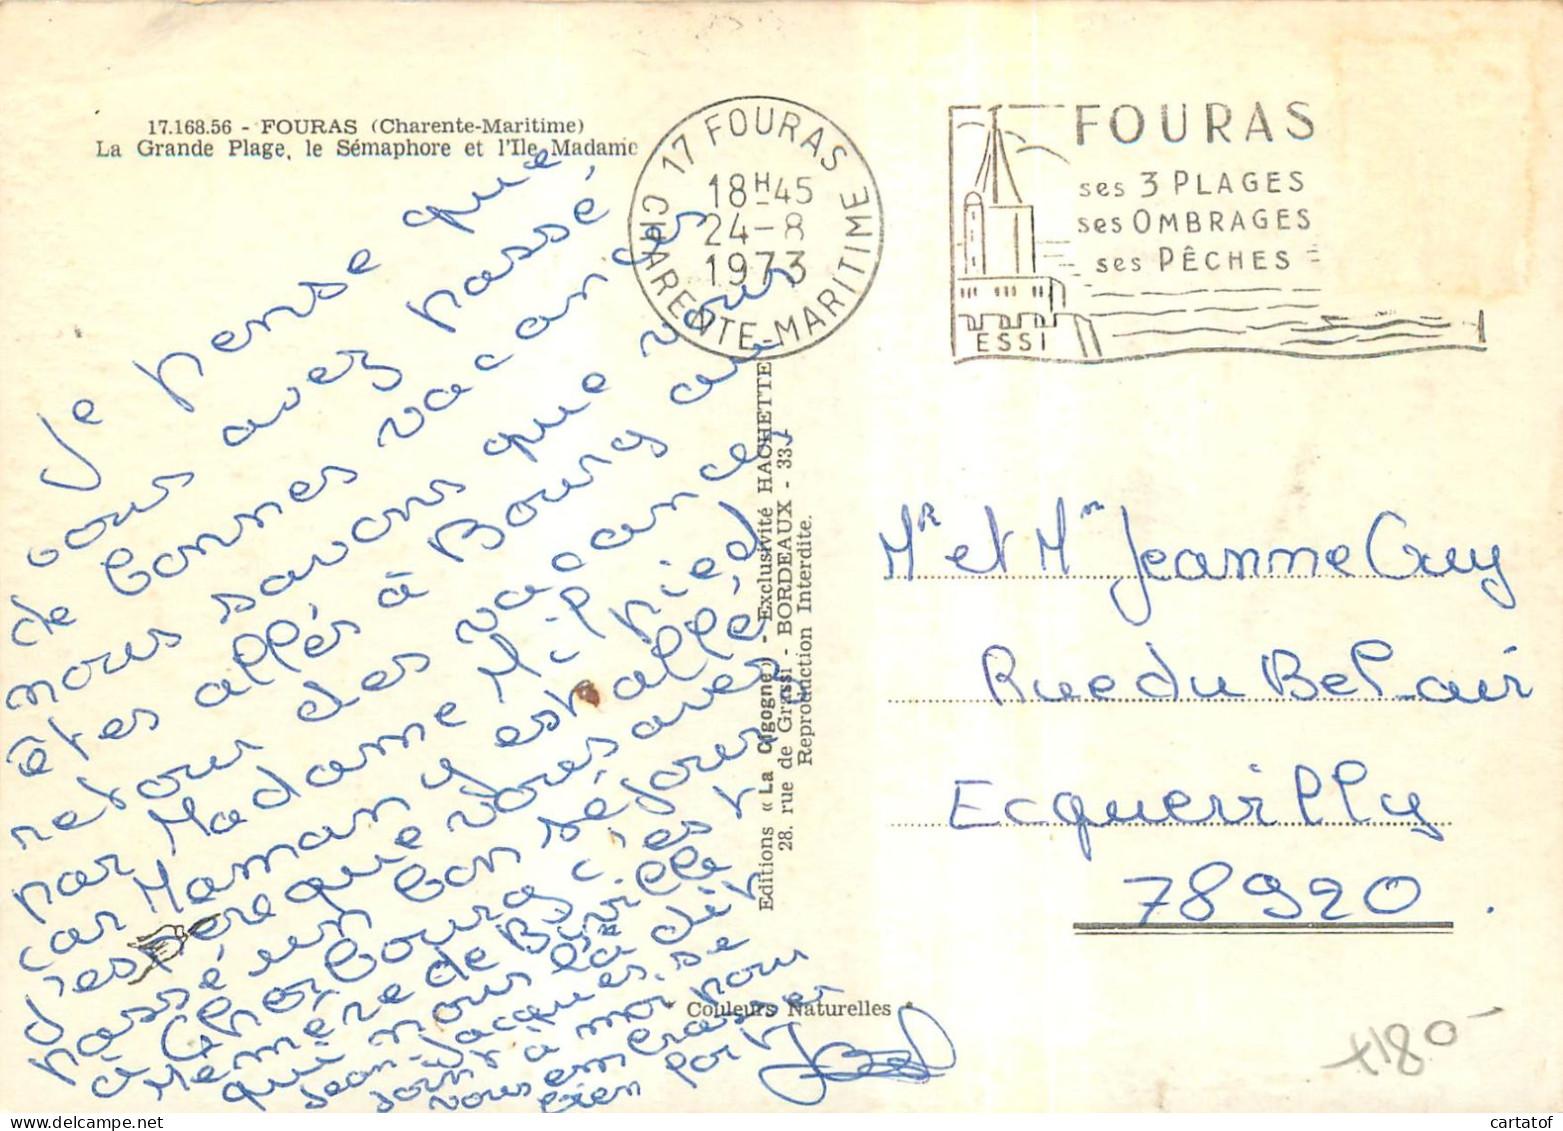 17.168.56 - FOURAS (Charente-Maritime)
La Grande Plage, le Sémaphore et l'Ile Madame
17 FOURAS
18H45
24-8
1973
CHARENTE-MARITIME
FOURAS
ses 3 PLAGES
ses OMBRAGES
ses PÊCHES
ESSI
Je pense que
vous avez passé
de bonnes vacances
nous savons que vous
êtes allés à Bourg au
retour des vacances
par Madame M.
car Maman y est allé,
j'espère que vous avez
passé un bon séjour
à Cherbourg c'est
Mémère de
qui nous l'a dit
Jean-Jacques se
joint à moi pour
vous embrasser
bien fort
Editions « La Cigogne » - Exclusivité HACHETTE
28, rue de Grassi - BORDEAUX - 33
Reproduction Interdite.
* Couleurs Naturelles *
Mr et Mm Jeanne Guy
Rue du Bel-air
Ecquevilly
78920.
cartatof